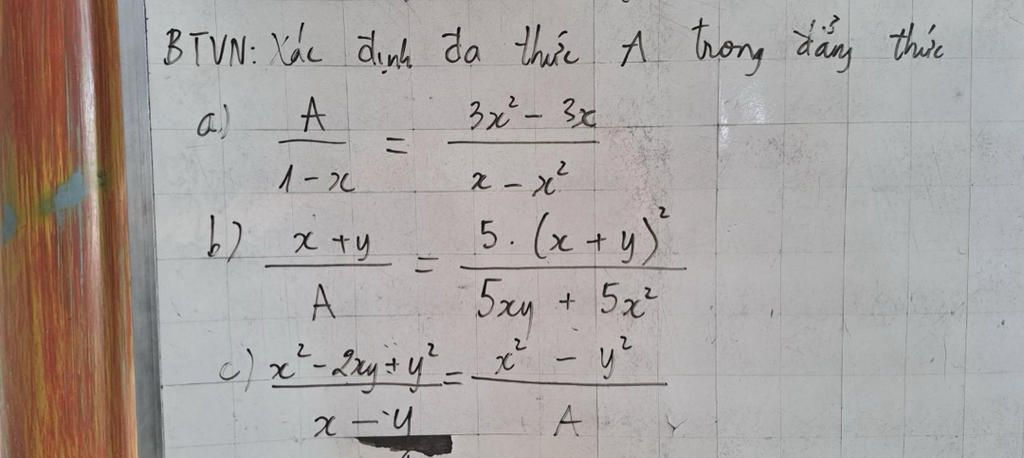 BTVN: Xác định đa thức A trong đẳng thức
a) A/(1-x) = (3x² - 3x)/(x - x²)
b) (x+y)/A = (5.(x + y)²)/(5xy + 5x²)
c) (x² - 2xy + y²)/(x - y) = (x² - y²)/A